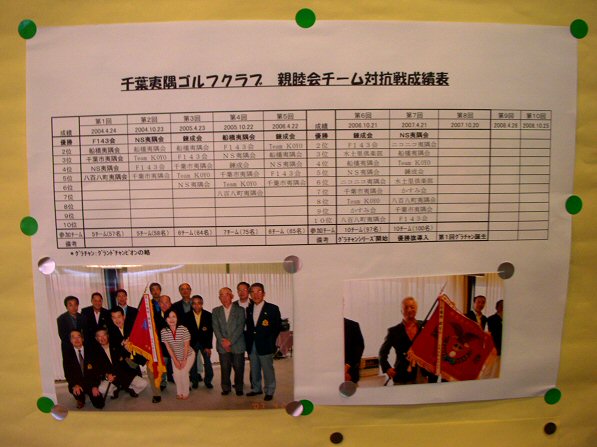 千葉夷隅ゴルフクラブ 親睦会チーム対抗戦成績表
成績 第1回 第2回 第3回 第4回 第5回
2004.4.24 2004.10.23 2005.4.23 2005.10.22 2006.4.22
優勝 F143会 NS夷隅会 錬成会 船橋夷隅会 錬成会
2位 船橋夷隅会 船橋夷隅会 船橋夷隅会 F143会 Team KOYO
3位 千葉市夷隅会 Team KOYO F143会 NS夷隅会 船橋夷隅会
4位 NS夷隅会 F143会 千葉市夷隅会 錬成会 NS夷隅会
5位 八百八町夷隅会 千葉市夷隅会 Team KOYO Team KOYO F143会
6位 NS夷隅会 千葉市夷隅会 千葉市夷隅会
7位 八百八町夷隅会
8位
9位
10位
参加チーム 5チーム(57名) 5チーム(58名) 6チーム(64名) 7チーム(75名) 6チーム(65名)
備考
成績 第6回 第7回 第8回 第9回 第10回
2006.10.21 2007.4.21 2007.10.20 2008.4.26 2008.10.25
優勝 錬成会 NS夷隅会
2位 F143会 ニコニコ夷隅会
3位 水土里倶楽部 船橋夷隅会
4位 船橋夷隅会 Team KOYO
5位 NS夷隅会 錬成会
6位 ニコニコ夷隅会 水土里倶楽部
7位 千葉市夷隅会 かずみ会
8位 Team KOYO F143会
9位 かずみ会 千葉市夷隅会
10位 八百八町夷隅会 八百八町夷隅会
参加チーム 10チーム(97名) 10チーム(100名)
備考 グラチャンシリーズ開始 優勝旗導入 第1回グラチャン誕生
*グラチャン:グランドチャンピオンの略